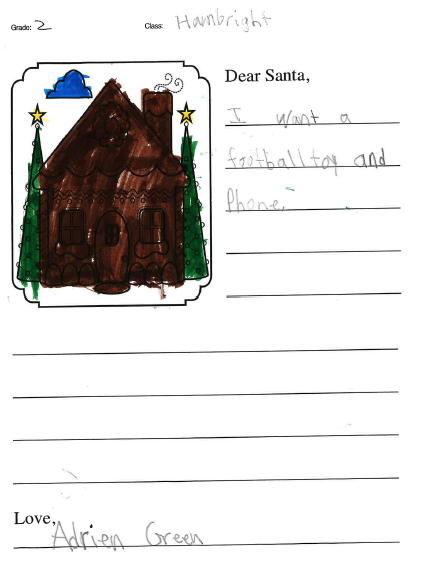 Grade: 2 Class: Hambright
Dear Santa,
I want a
football toy and
Phone.
Love,
Adrien Green